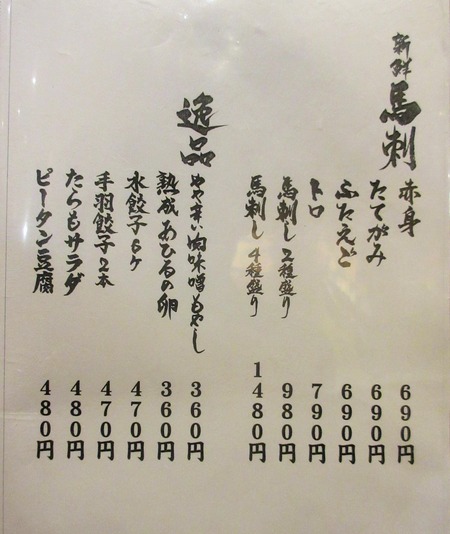 新鮮馬刺
赤身 690円
たてがみ 690円
ふたえご 690円
トロ 790円
馬刺し2種盛り 980円
馬刺し4種盛り 1480円
逸品
やや辛い肉味噌もやし 360円
熟成あひるの卵 360円
水餃子6ヶ 470円
手羽餃子2本 470円
たらもサラダ 480円
ピータン豆腐 480円